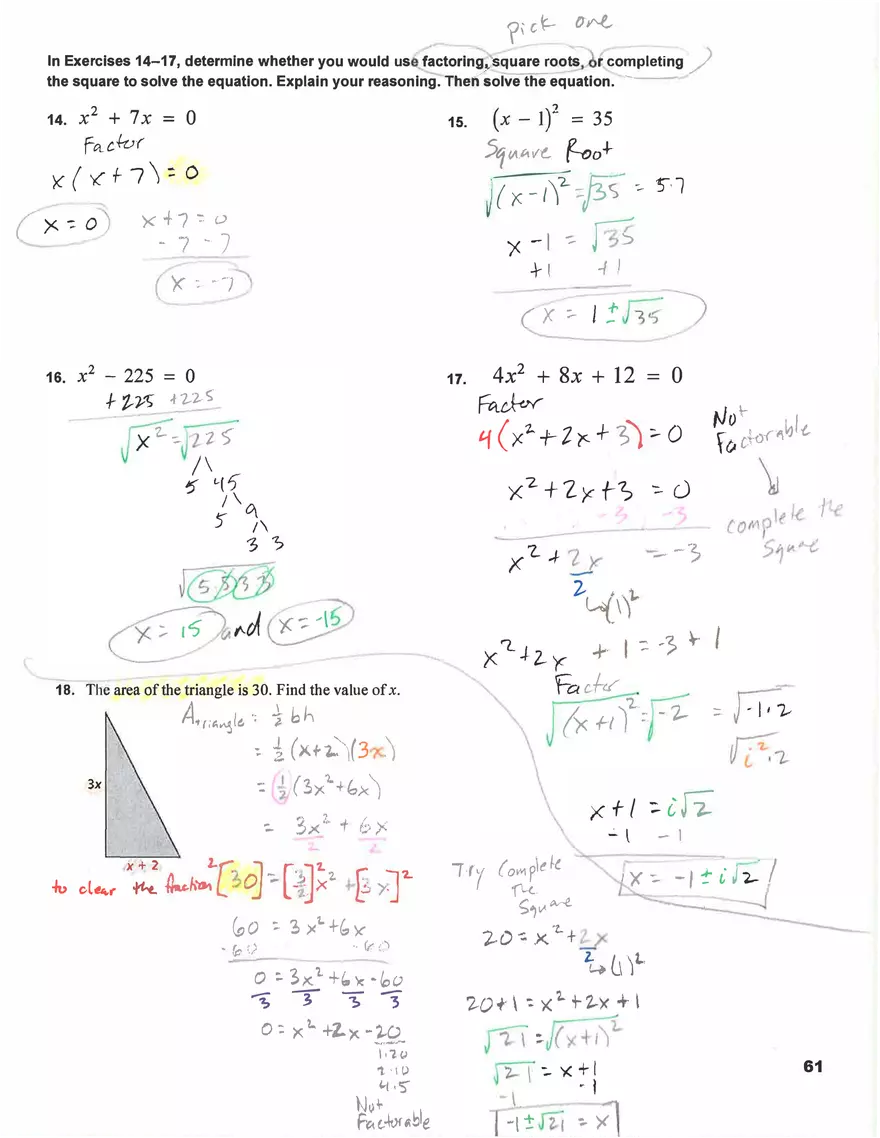 pick one
In Exercises 14–17, determine whether you would use factoring, square roots, or completing
the square to solve the equation. Explain your reasoning. Then solve the equation.
14. x² + 7x = 0
Factor
x(x+7) = 0
x = 0
x+7 = 0
-7 -7
x = -7
15. (x − 1)² = 35
Square Root
√(x-1)² = √35 = 5.7
x - 1 = √35
+1 +1
x = 1 ± √35
16. x² − 225 = 0
+225 +225
√x² = √225
5 45
5 9
3 3
√5·5·3·3
x = 15 and x = -15
17. 4x² + 8x + 12 = 0
Factor
4(x² + 2x + 3) = 0
Not
Factorable
x² + 2x + 3 = 0
-3 -3
complete the
Square
x² + 2x = -3
2
(1)²
x² + 2x + 1 = -3 + 1
Factor
√(x+1)² = √-2 = √-1·2
√i²·2
x + 1 = i√2
-1 -1
x = -1 ± i√2
18. The area of the triangle is 30. Find the value of x.
3x
x + 2
A triangle = ½ bh
= ½ (x+2)(3x)
= ½ (3x² + 6x)
= 3x² + 6x
2 2
to clear the fraction 2[30] = [3/2]²x² + [3x]²
60 = 3x² + 6x
-60 -60
0 = 3x² + 6x - 60
3 3 3 3
0 = x² + 2x - 20
1·20
2·10
4·5
Not
Factorable
Try Complete
The
Square
20 = x² + 2x
2
(1)²
20+1 = x² + 2x + 1
√21 = √(x+1)²
√21 = x + 1
-1 -1
-1 ± √21 = x
61